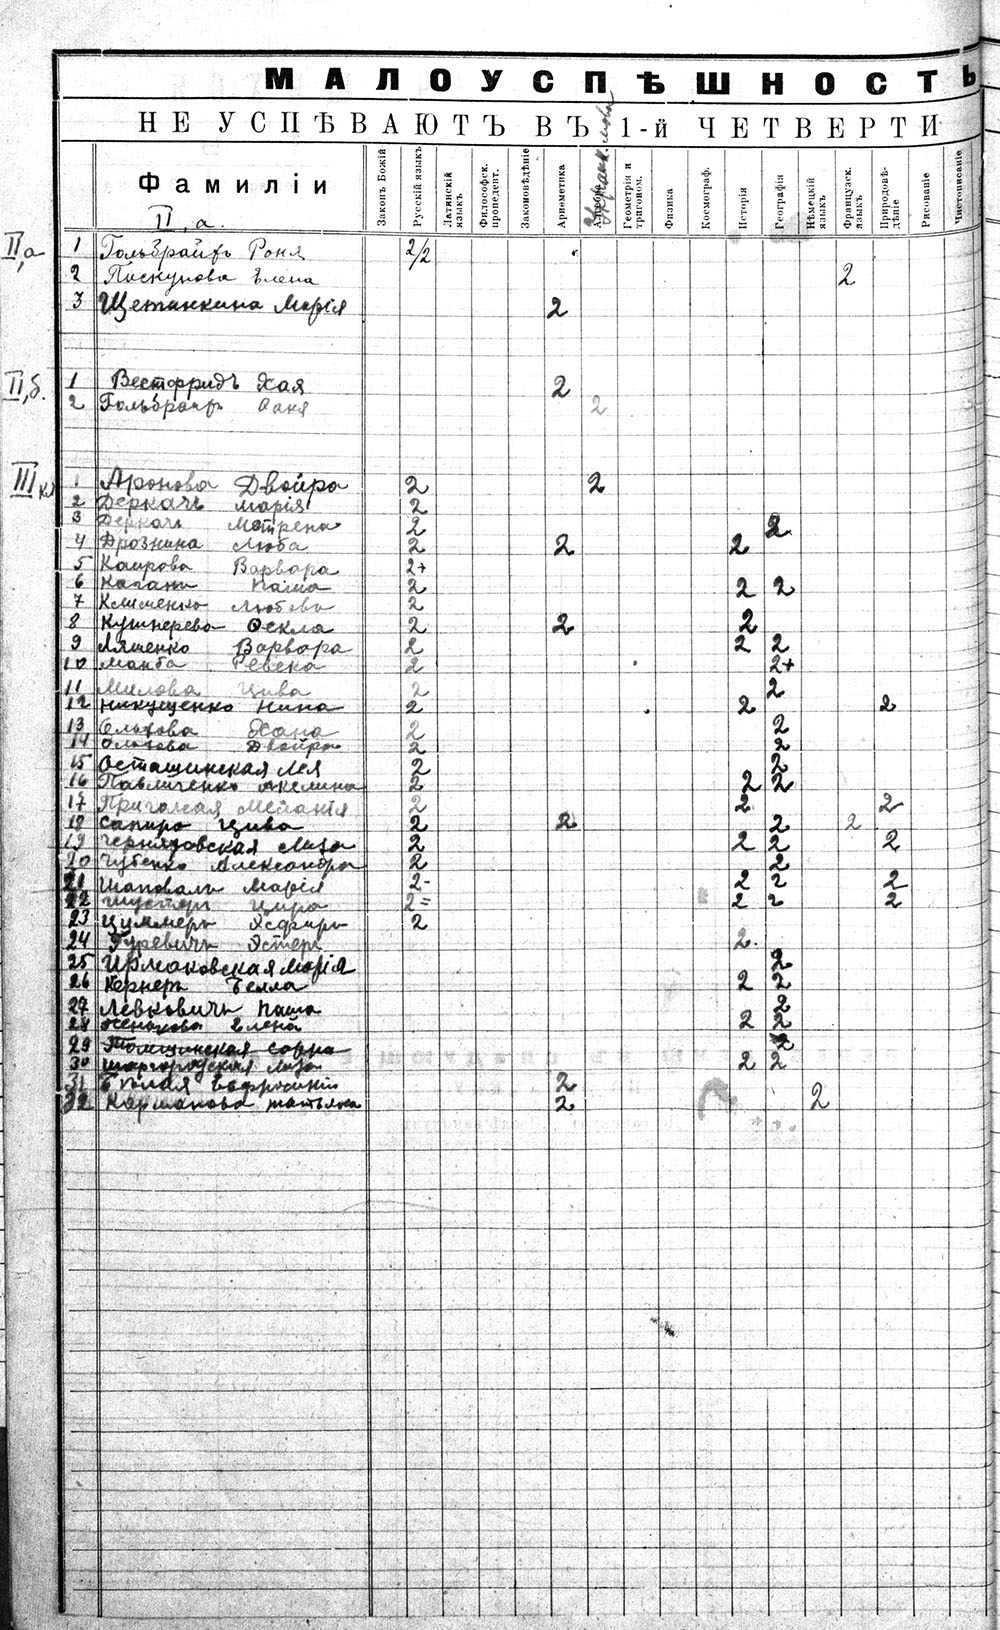 МАЛОУСПѢШНОСТЬ
НЕ УСПѢВАЮТЪ ВЪ 1-й ЧЕТВЕРТИ
Фамиліи
II, а.
Законъ Божій
Русскій языкъ
Латинскій языкъ
Философск. пропедевт.
Законовѣдѣніе
Ариѳметика
Геометрія и тригоном.
Физика
Космограф.
Исторія
Географія
Нѣмецкій языкъ
Французск. языкъ
Природовѣ-дѣніе
Рисованіе
Чистописаніе
II, а 1 Роня 2/2
2 Пискунова Елена 2
3 Щетинкина Марія 2
II, б. 1 Вестфридъ Хая 2
2 2
III кл 1 Аронова Двойра 2 2
2 Деркачъ Марія 2
3 Деркачъ Матрена 2 2
4 Дрознина Люба 2 2 2
5 Каирова Варвара 2+
6 Каганъ Паша 2 2 2
7 Клименко Любовь 2
8 Кушнерева Ѳекла 2 2 2
9 Ляшенко Варвара 2 2 2
10 Ревека 2 2+
11 Милова Цива 2 2
12 Никущенко Нина 2 2 2
13 Хана 2 2
14 Двойра 2 2
15 Осташинская Лея 2 2
16 Павличенко Акелина 2 2 2
17 Меланія 2 2 2
18 Сапиро Цива 2 2 2 2
19 Лиза 2 2 2 2
20 Чубенко Александра 2 2
21 Шаповалъ Марія 2- 2 2 2
22 Шустеръ Цира 2= 2 2 2
23 Циммеръ Эсфирь 2
24 Гуревичъ Эстеръ 2
25 Ирмаковская Марія 2
26 Кернеръ Белла 2 2
27 Левковичъ Паша 2
28 Елена 2 2
29 Сорка 2
30 Шаргородская Лиза 2 2
31 Бѣлая Евфросинія 2
32 Каршанова Татьяна 2 2